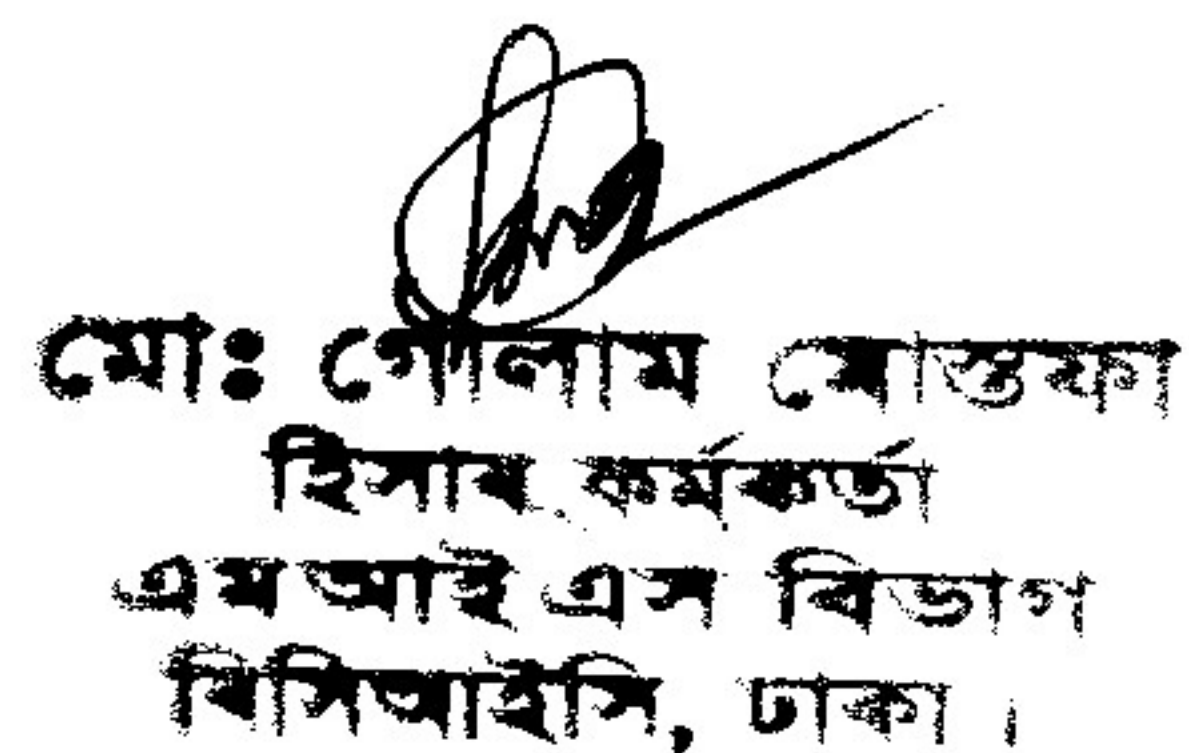 মো: গোলাম মোস্তফা
হিসাব কর্মকর্তা
এম আই এস বিভাগ
বিসিআইসি, ঢাকা ।